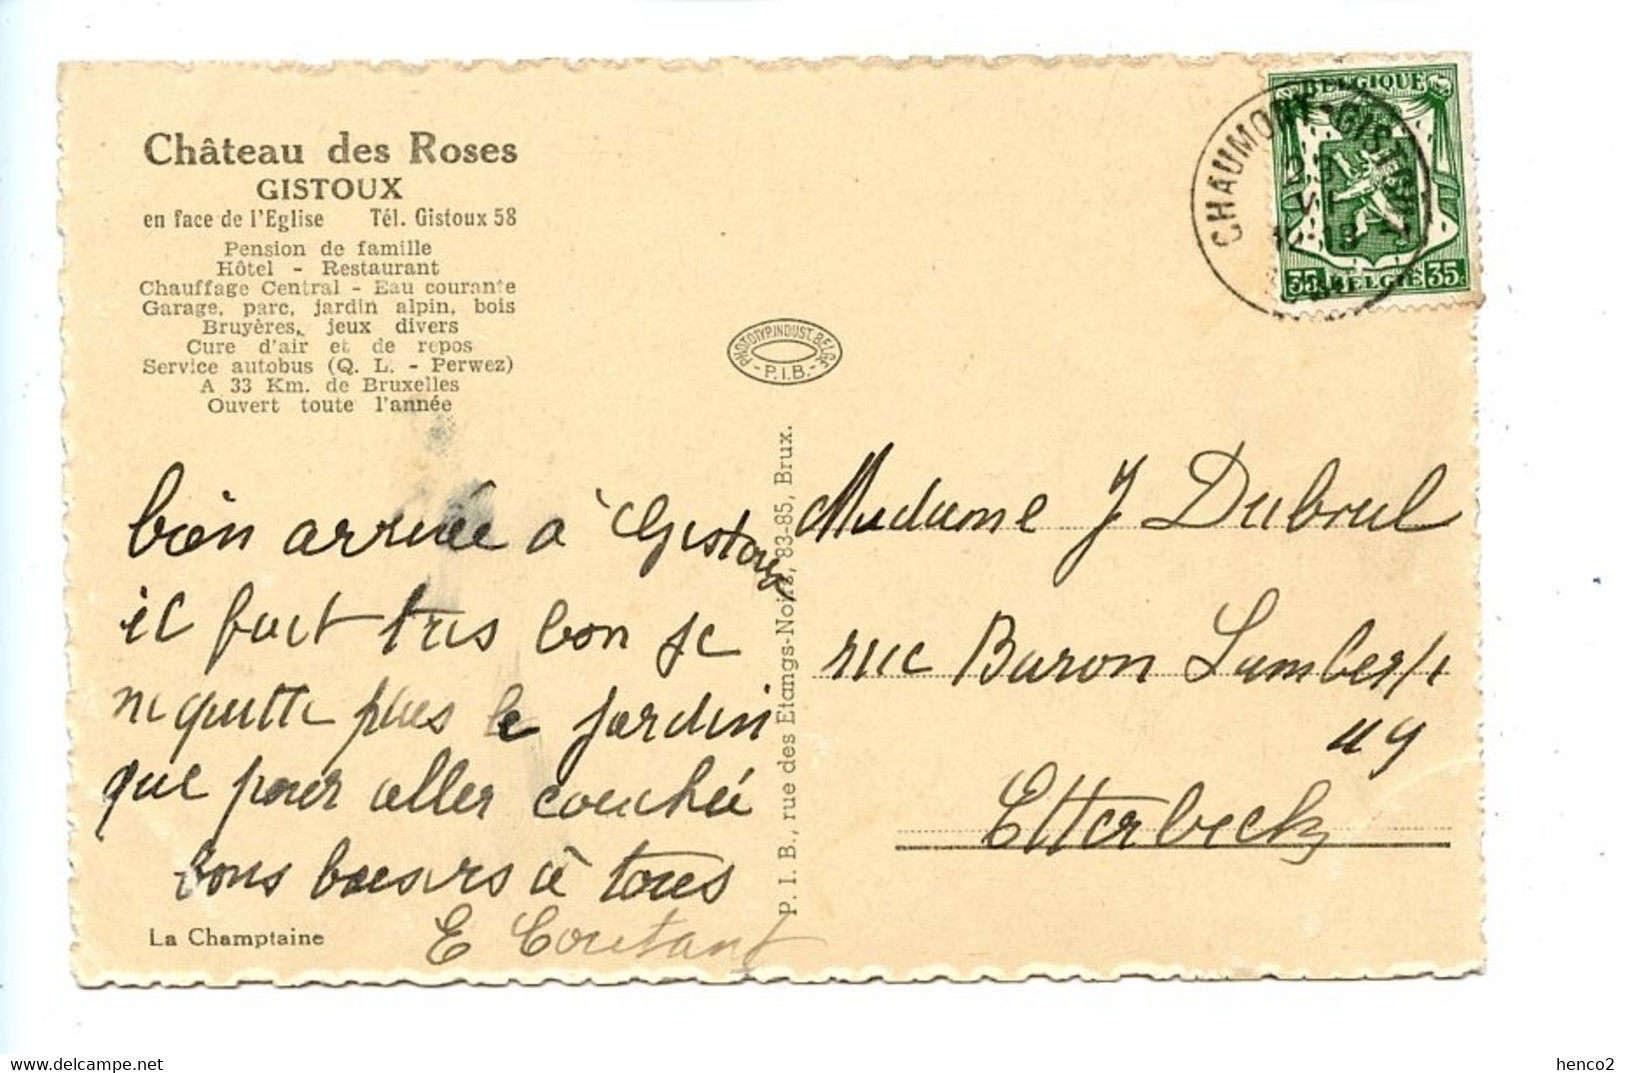 Château des Roses
GISTOUX
en face de l'Eglise Tél. Gistoux 58
Pension de famille
Hôtel - Restaurant
Chauffage Central - Eau courante
Garage, parc, jardin alpin, bois
Bruyères, jeux divers
Cure d'air et de repos
Service autobus (Q. L. - Perwez)
A 33 Km. de Bruxelles
Ouvert toute l'année
bien arrivée à Gistoux
il fait très bon je
ne quitte plus le jardin
que pour aller couché
bons baisers à tous
E Coutant
La Champtaine
PHOTOTYP. INDUST. BELGE
- P.I.B. -
P. I. B., rue des Etangs-Noirs, 83-85, Brux.
BELGIQUE
35 BELGIE 35
CHAUMONT-GISTOUX
VI
Madame J Dubrul
rue Baron Lambert
49
Etterbeek
delcampe.net
henco2